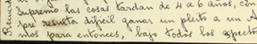 Supremo las cosas tardan de 4 a 6 años, con
pre resulta dificil ganar un pleito a un A
mos para entonces, bajo todos los aspecto